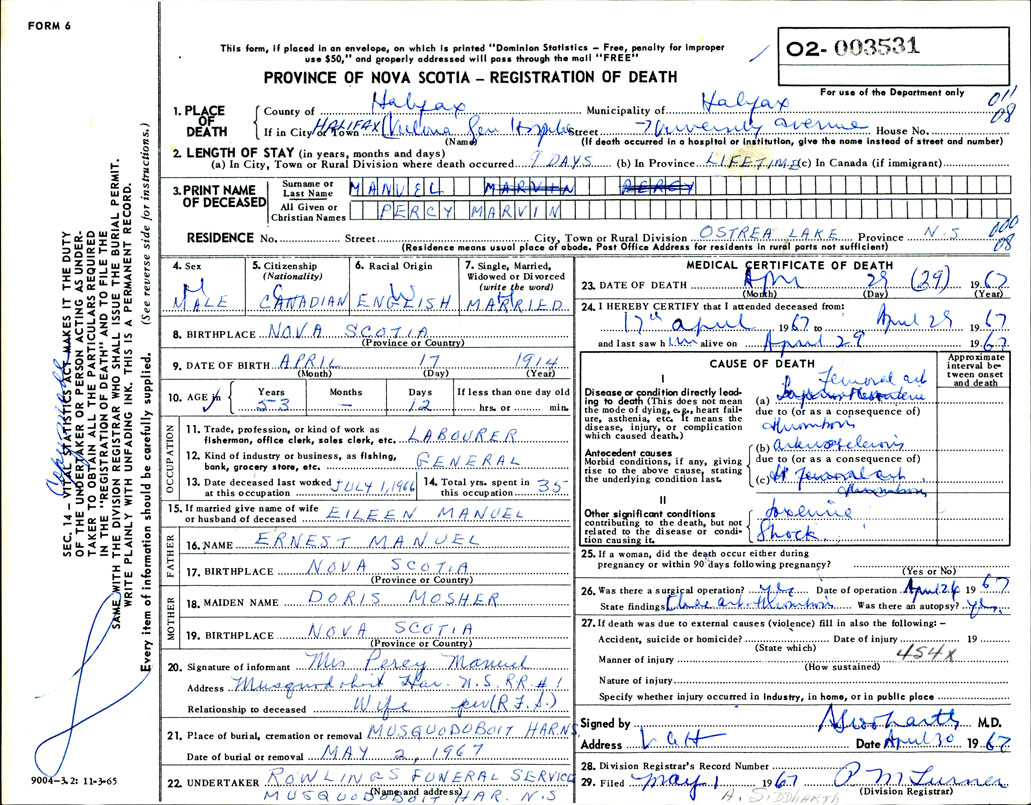 FORM 6
This form, if placed in an envelope, on which is printed "Dominion Statistics – Free, penalty for improper
use $50," and properly addressed will pass through the mail "FREE"
02- 003531
For use of the Department only
PROVINCE OF NOVA SCOTIA – REGISTRATION OF DEATH
011
08
1. PLACE OF DEATH
County of Halifax Municipality of Halifax
If in City or Town HALIFAX Victoria Gen Hospital Street University avenue House No.
(Name) (If death occurred in a hospital or institution, give the name instead of street and number)
2. LENGTH OF STAY (in years, months and days)
(a) In City, Town or Rural Division where death occurred 9 DAYS (b) In Province LIFETIME (c) In Canada (if immigrant)
3. PRINT NAME OF DECEASED
Surname or Last Name MANUEL MARVIN PERCY
All Given or Christian Names PERCY MARVIN
000
08
RESIDENCE No. Street City, Town or Rural Division OSTREA LAKE Province N.S
(Residence means usual place of abode. Post Office Address for residents in rural parts not sufficient)
4. Sex MALE
5. Citizenship (Nationality) CANADIAN
6. Racial Origin ENGLISH
7. Single, Married, Widowed or Divorced (write the word) MARRIED
8. BIRTHPLACE NOVA SCOTIA
(Province or Country)
9. DATE OF BIRTH APRIL 17 1914
(Month) (Day) (Year)
10. AGE in Years 53 Months – Days 12 If less than one day old hrs. or min.
OCCUPATION
11. Trade, profession, or kind of work as
fisherman, office clerk, sales clerk, etc. LABOURER
12. Kind of industry or business, as fishing,
bank, grocery store, etc. GENERAL
13. Date deceased last worked at this occupation JULY 1, 1966
14. Total yrs. spent in this occupation 35
15. If married give name of wife
or husband of deceased EILEEN MANUEL
FATHER
16. NAME ERNEST MANUEL
17. BIRTHPLACE NOVA SCOTIA
(Province or Country)
MOTHER
18. MAIDEN NAME DORIS MOSHER
19. BIRTHPLACE NOVA SCOTIA
(Province or Country)
20. Signature of informant Mrs Percy Manuel
Address Musquodoboit Har. N.S. RR #1
Relationship to deceased Wife per (R.F.S.)
21. Place of burial, cremation or removal MUSQUODOBOIT HAR N.S.
Date of burial or removal MAY 2, 1967
22. UNDERTAKER ROWLINGS FUNERAL SERVICE
(Name and address) MUSQUODOBOIT HAR. N.S
MEDICAL CERTIFICATE OF DEATH
23. DATE OF DEATH Apr 29 (29) 1967
(Month) (Day) (Year)
24. I HEREBY CERTIFY that I attended deceased from:
17th april 1967 to April 29 1967
and last saw him alive on April 29 1967
CAUSE OF DEATH
Approximate interval between onset and death
I
Disease or condition directly leading to death (This does not mean the mode of dying, e.g., heart failure, asthenia, etc. It means the disease, injury, or complication which caused death.)
(a) Femoral art
due to (or as a consequence of)
thrombosis
Antecedent causes
Morbid conditions, if any, giving rise to the above cause, stating the underlying condition last.
(b) arteriosclerosis
due to (or as a consequence of)
(c) Lt Femoral art
thrombosis
II
Other significant conditions
contributing to the death, but not related to the disease or condition causing it.
Shock
25. If a woman, did the death occur either during
pregnancy or within 90 days following pregnancy?
(Yes or No)
26. Was there a surgical operation? yes Date of operation April 26 1967
State findings art thrombosis Was there an autopsy? yes
27. If death was due to external causes (violence) fill in also the following: –
Accident, suicide or homicide? Date of injury 19
(State which)
454x
Manner of injury
(How sustained)
Nature of injury
Specify whether injury occurred in industry, in home, or in public place
Signed by A Siddharth M.D.
Address V G H Date April 30 1967
28. Division Registrar's Record Number
29. Filed May 1 1967 P M Turner
(Division Registrar)
A. SIDDHARTH
SEC. 14 – VITAL STATISTICS ACT MAKES IT THE DUTY
OF THE UNDERTAKER OR PERSON ACTING AS UNDER-
TAKER TO OBTAIN ALL THE PARTICULARS REQUIRED
IN THE "REGISTRATION OF DEATH" AND TO FILE THE
SAME WITH THE DIVISION REGISTRAR WHO SHALL ISSUE THE BURIAL PERMIT.
WRITE PLAINLY WITH UNFADING INK. THIS IS A PERMANENT RECORD.
Every item of information should be carefully supplied. (See reverse side for instructions.)
9004-3.2: 11-3-65